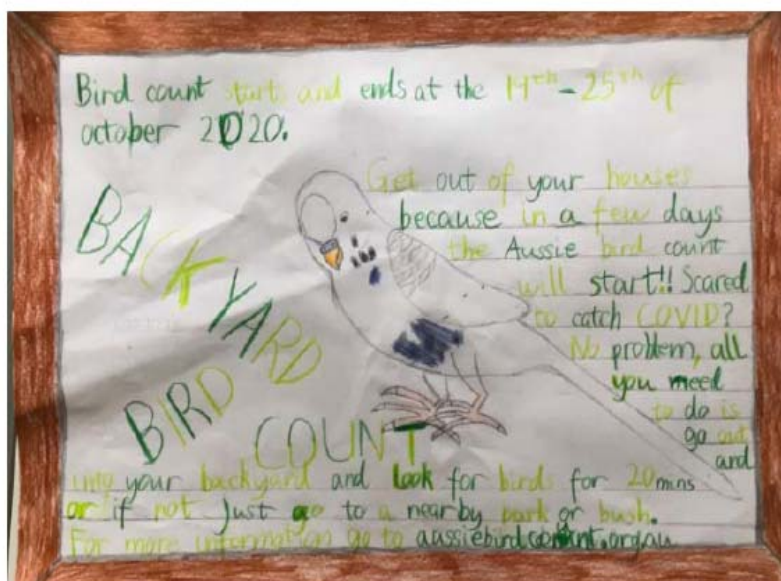 Bird count starts and ends at the 19th-25th of
october 2020.
BACKYARD
BIRD
COUNT
Get out of your houses
because in a few days
the Aussie bird count
will start!! Scared
to catch COVID?
No problem, all
you need
to do is
go out
and
into your backyard and look for birds for 20mins
or if not Just go to a nearby park or bush.
For more information go to aussiebirdcount.org.au